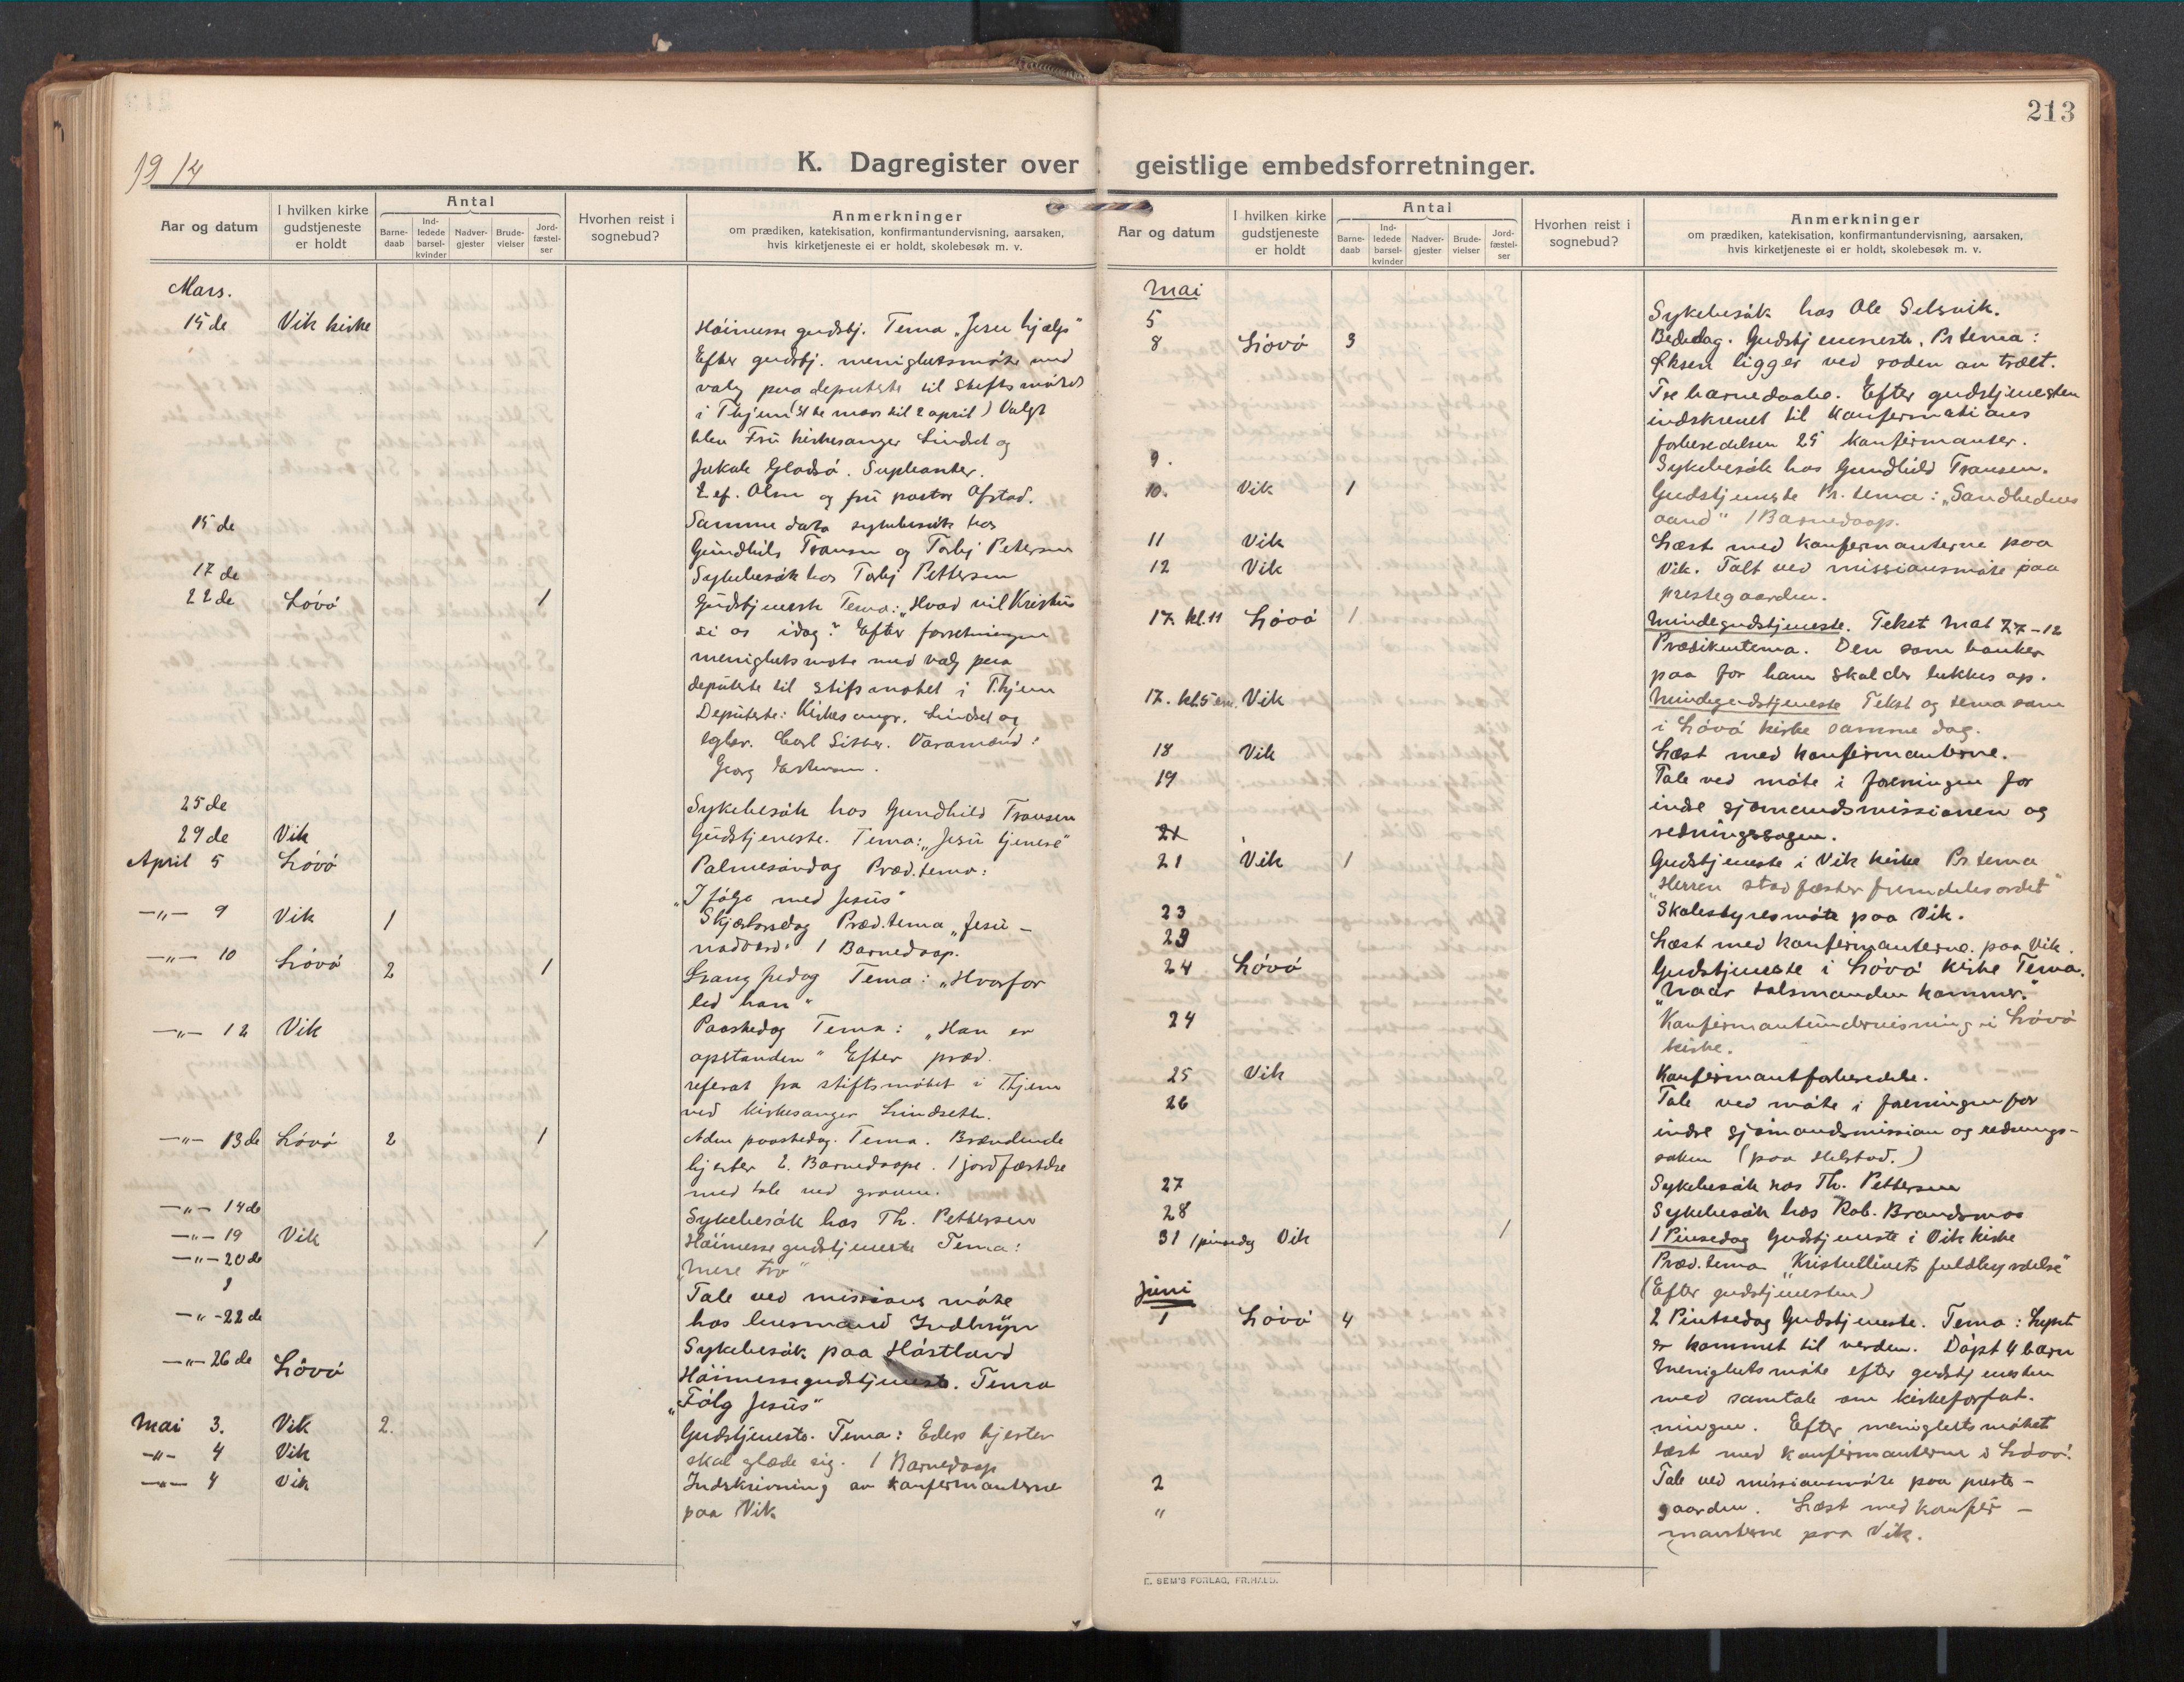 213
1914
K. Dagregister over geistlige embedsforretninger.
Aar og datum
I hvilken kirke gudstjeneste er holdt
Antal
Barne-daab
Ind-ledede barsel-kvinder
Nadver-gjester
Brude-vielser
Jord-fæstel-ser
Hvorhen reist i sognebud?
Anmerkninger
om prædiken, katekisation, konfirmantundervisning, aarsaken,
hvis kirketjeneste ei er holdt, skolebesøk m. v.
Mars.
15 de Vik kirke Höimesse gudstj. Tema „Jesu hjælp"
Efter gudstj. menighetsmöte med
valg paa deputerte til Stiftsmötet
i Thjem (31 te mars til 2 april) Valgt
blev Frü kirkesanger Lindset og
Jakob Gladsö. Suplianter.
L ef. Olsen og frü pastor Afstad.
15 de Samme dato sykebesök hos
Gündhild Transen og Torbj Petersen
17 de Sykebesök hos Torbj Pettersen
22 de Lövö 1 Güdstjeneste Tema: „Hvad vil Kristus
si os idag? Efter forretningen
menighetsmöte med valg paa
deputerte til stifsmötet i Thjem
Deputerte: Kirkesangr. Lindset og
Varamænd:
Georg
25 de Sykebesök hos Gundhild Transen
29 de Vik Güdstjeneste. Tema: „Jesü tjenere"
April 5 Lövö Palmesöndag Præd.tema:
„I fölge med Jesüs"
—„— 9 Vik 1 Skjærtorsdag Præd.tema „Jesü -
nadverd" 1 Barnedaap.
—„— 10 Lövö 2 1 Langfredag Tema: „Hvorfor
led han"
—„— 12 Vik Paaskedag Tema: „Han er
opstanden" Efter præd.
referat fra stiftsmötet i Thjem
ved kirkesanger Lindseth.
—„— 13 de Lövö 2 1 Aden paaskedag. Tema. Brændende
hjerter 2. Barnedaape. 1 jordfæstelse
med tale ved graven.
—„— 14 de Sykebesök hos Th. Pettersen
—„— 19 Vik 1 Höimesse gudstjeneste Tema:
„Mere tro"
—„— 20 de Tale ved missions möte
hos lensmand Indbryn
—„— 22 de Sykebesök paa Hästland
—„— 26 de Lövö Höimessegudstjeneste. Tema
„Fölg Jesüs"
Mai 3. Vik 2. Gudstjeneste. Tema: Eders hjerter
skal glæde sig. 1 Barnedaap
—„— 4 Vik
—„— 4 Vik Indskrivning av konfirmanterne
paa Vik
Aar og datum
I hvilken kirke gudstjeneste er holdt
Antal
Barne-daab
Ind-ledede barsel-kvinder
Nadver-gjester
Brude-vielser
Jord-fæstel-ser
Hvorhen reist i sognebud?
Anmerkninger
om prædiken, katekisation, konfirmantundervisning, aarsaken,
hvis kirketjeneste ei er holdt, skolebesøk m. v.
Mai
5 Sykebesök hos Ole Selsvik.
8 Lövö 3 Bededag. Gudstjeneste. Pr tema:
Öksen ligger ved roden av træet.
Tre barnedaabe. Efter gudstjenesten
indskrevet til konfirmations
forberedelsen 25 konfirmanter.
9. Sykebesök hos Gundhild Transen.
10. Vik 1 Gudstjeneste Pr. tema: „Sandhedens
aand" 1 Barnedaap.
11 Vik Læst med konfirmanterne paa
12 Vik Vik. Talt ved missionsmöte paa
prestegaarden.
17. kl. 11 Lövö 1. Mindegudstjeneste. Tekst Mat 7.7-12
Prædikentema. Den som banker
paa for ham skal der lukkes op.
17. kl. 5 em. Vik Mindegudstjeneste Tekst og tema som
i Lövö kirke samme dag.
18 Vik Læst med konfirmanterne.
19 Tale ved möte i foreningen for
indre sjömandsmissionen og
21 redningssagen.
21 Vik 1 Gudstjeneste i Vik kirke Pr tema
„Herren stadfæster fremdeles ordet"
23 Skolestyresmöte paa Vik.
23 Læst med konfirmanterne paa Vik.
24 Lövö Gudstjeneste i Lövö kirke Tema.
„Naar talsmanden kommer."
24 Konfirmantündervisning i Lövö
kirke.
25 Vik Konfirmantforberedelse.
26 Tale ved möte i foreningen for
indre sjömandsmission og rednings-
saken (paa Helstad.)
27 Sykebesök hos Th. Pettersen
28 Sykebesök hos Rob. Brandsmos
31 1 pinsedag Vik 1 1 Pinsedag Gudstjeneste i Vik kirke
Præd.tema „Kristenlivets fuldbyrdelse"
(Efter gudstjenesten)
Juni
1 Lövö 4 2 Pintsedag Gudstjeneste. Tema: Lyset
er kommet til verden. Döpt 4 barn
Menighets möte efter gudstjenesten
med samtale om kirkeforfat-
ningen. Efter menighetsmötet
læst med konfirmanterne i Lövö.
2 Tale ved missionsmöte paa preste-
„ gaarden. Læst med konfir-
manterne paa Vik.
E. SEM'S FORLAG, FR.HALD.